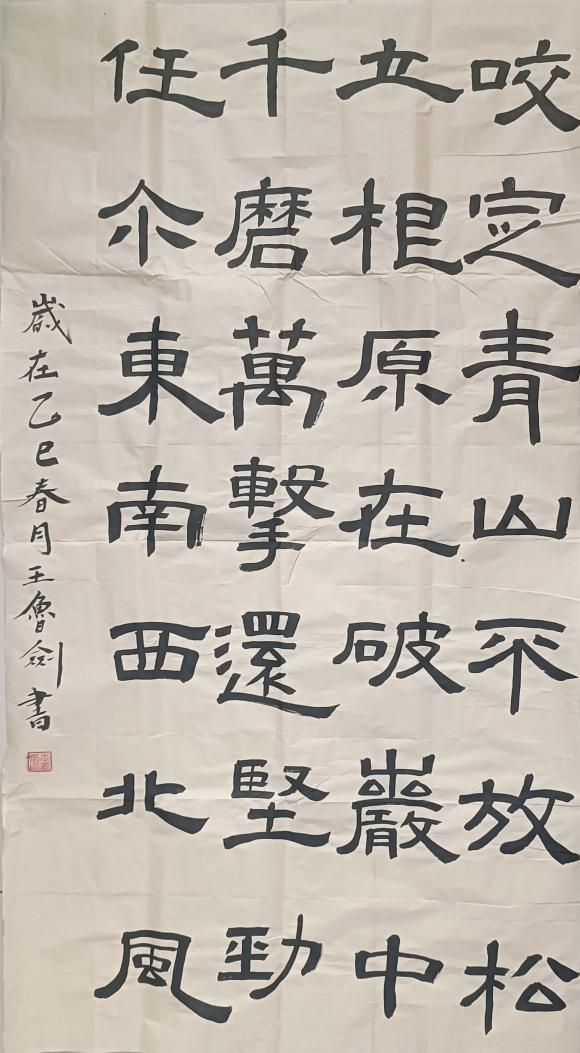 咬定青山不放松
立根原在破巖中
千磨萬擊還堅勁
任尒東南西北風
歲在乙巳春月王魯劍書